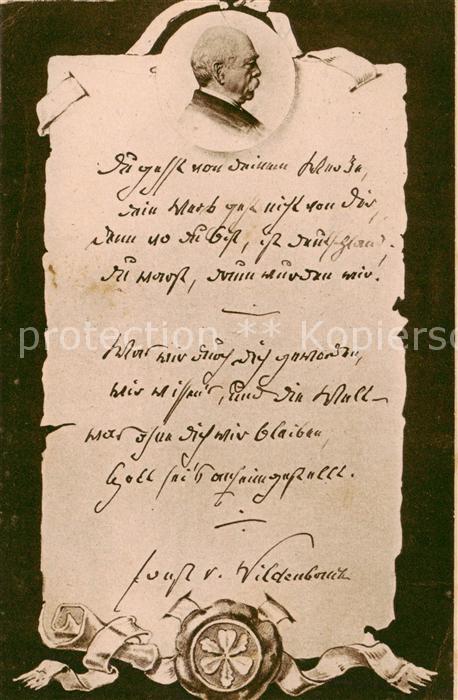 Du gehst von deinem Werke,
dein Werk geht nicht von dir,
denn wo du bist, ist Deutschland.
du warst, drum wurden wir!
Was wir durch dich geworden,
wir wissen's, und die Welt –
was ohne dich wir bleiben,
Gott sei's anheimgestellt.
Ernst v. Wildenbruch
protection ** Kopiersc